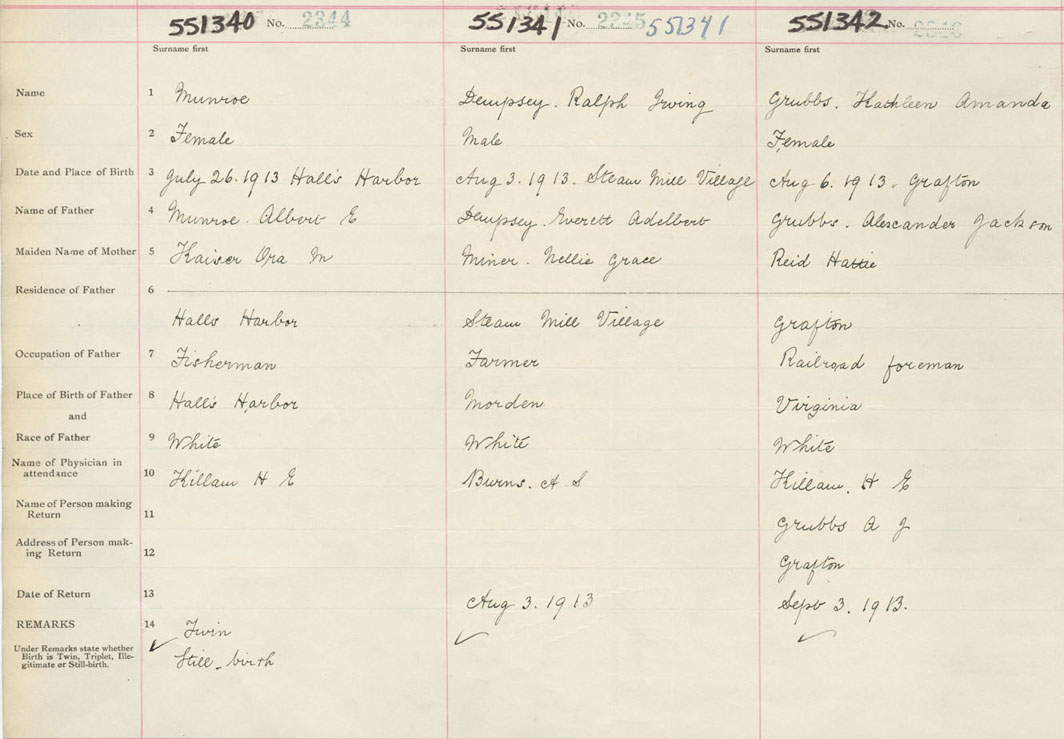 551340 No. 2344 551341 No. 2245 551341 551342 No.
Surname first Surname first Surname first
Name 1 Munroe Dempsey. Ralph Irving Grubbs. Kathleen Amanda
Sex 2 Female Male Female
Date and Place of Birth 3 July 26. 1913 Hall's Harbor Aug 3. 1913. Steam Mill Village Aug 6. 1913. Grafton
Name of Father 4 Munroe. Albert E Dempsey. Everett Adelbert Grubbs. Alescander Jackson
Maiden Name of Mother 5 Kaiser Ora M Miner. Nellie Grace Reid Hattie
Residence of Father 6
Halls Harbor Steam Mill Village Grafton
Occupation of Father 7 Fisherman Farmer Railroad foreman
Place of Birth of Father 8 Hall's Harbor Morden Virginia
and
Race of Father 9 White White White
Name of Physician in
attendance 10 Killam H E Burns. A S Killam. H E
Name of Person making
Return 11 Grubbs A J
Address of Person mak-
ing Return 12 Grafton
Date of Return 13 Aug 3. 1913 Sept 3. 1913.
REMARKS 14 Twin
Under Remarks state whether
Birth is Twin, Triplet, Ille-
gitimate or Still-birth. Still-birth